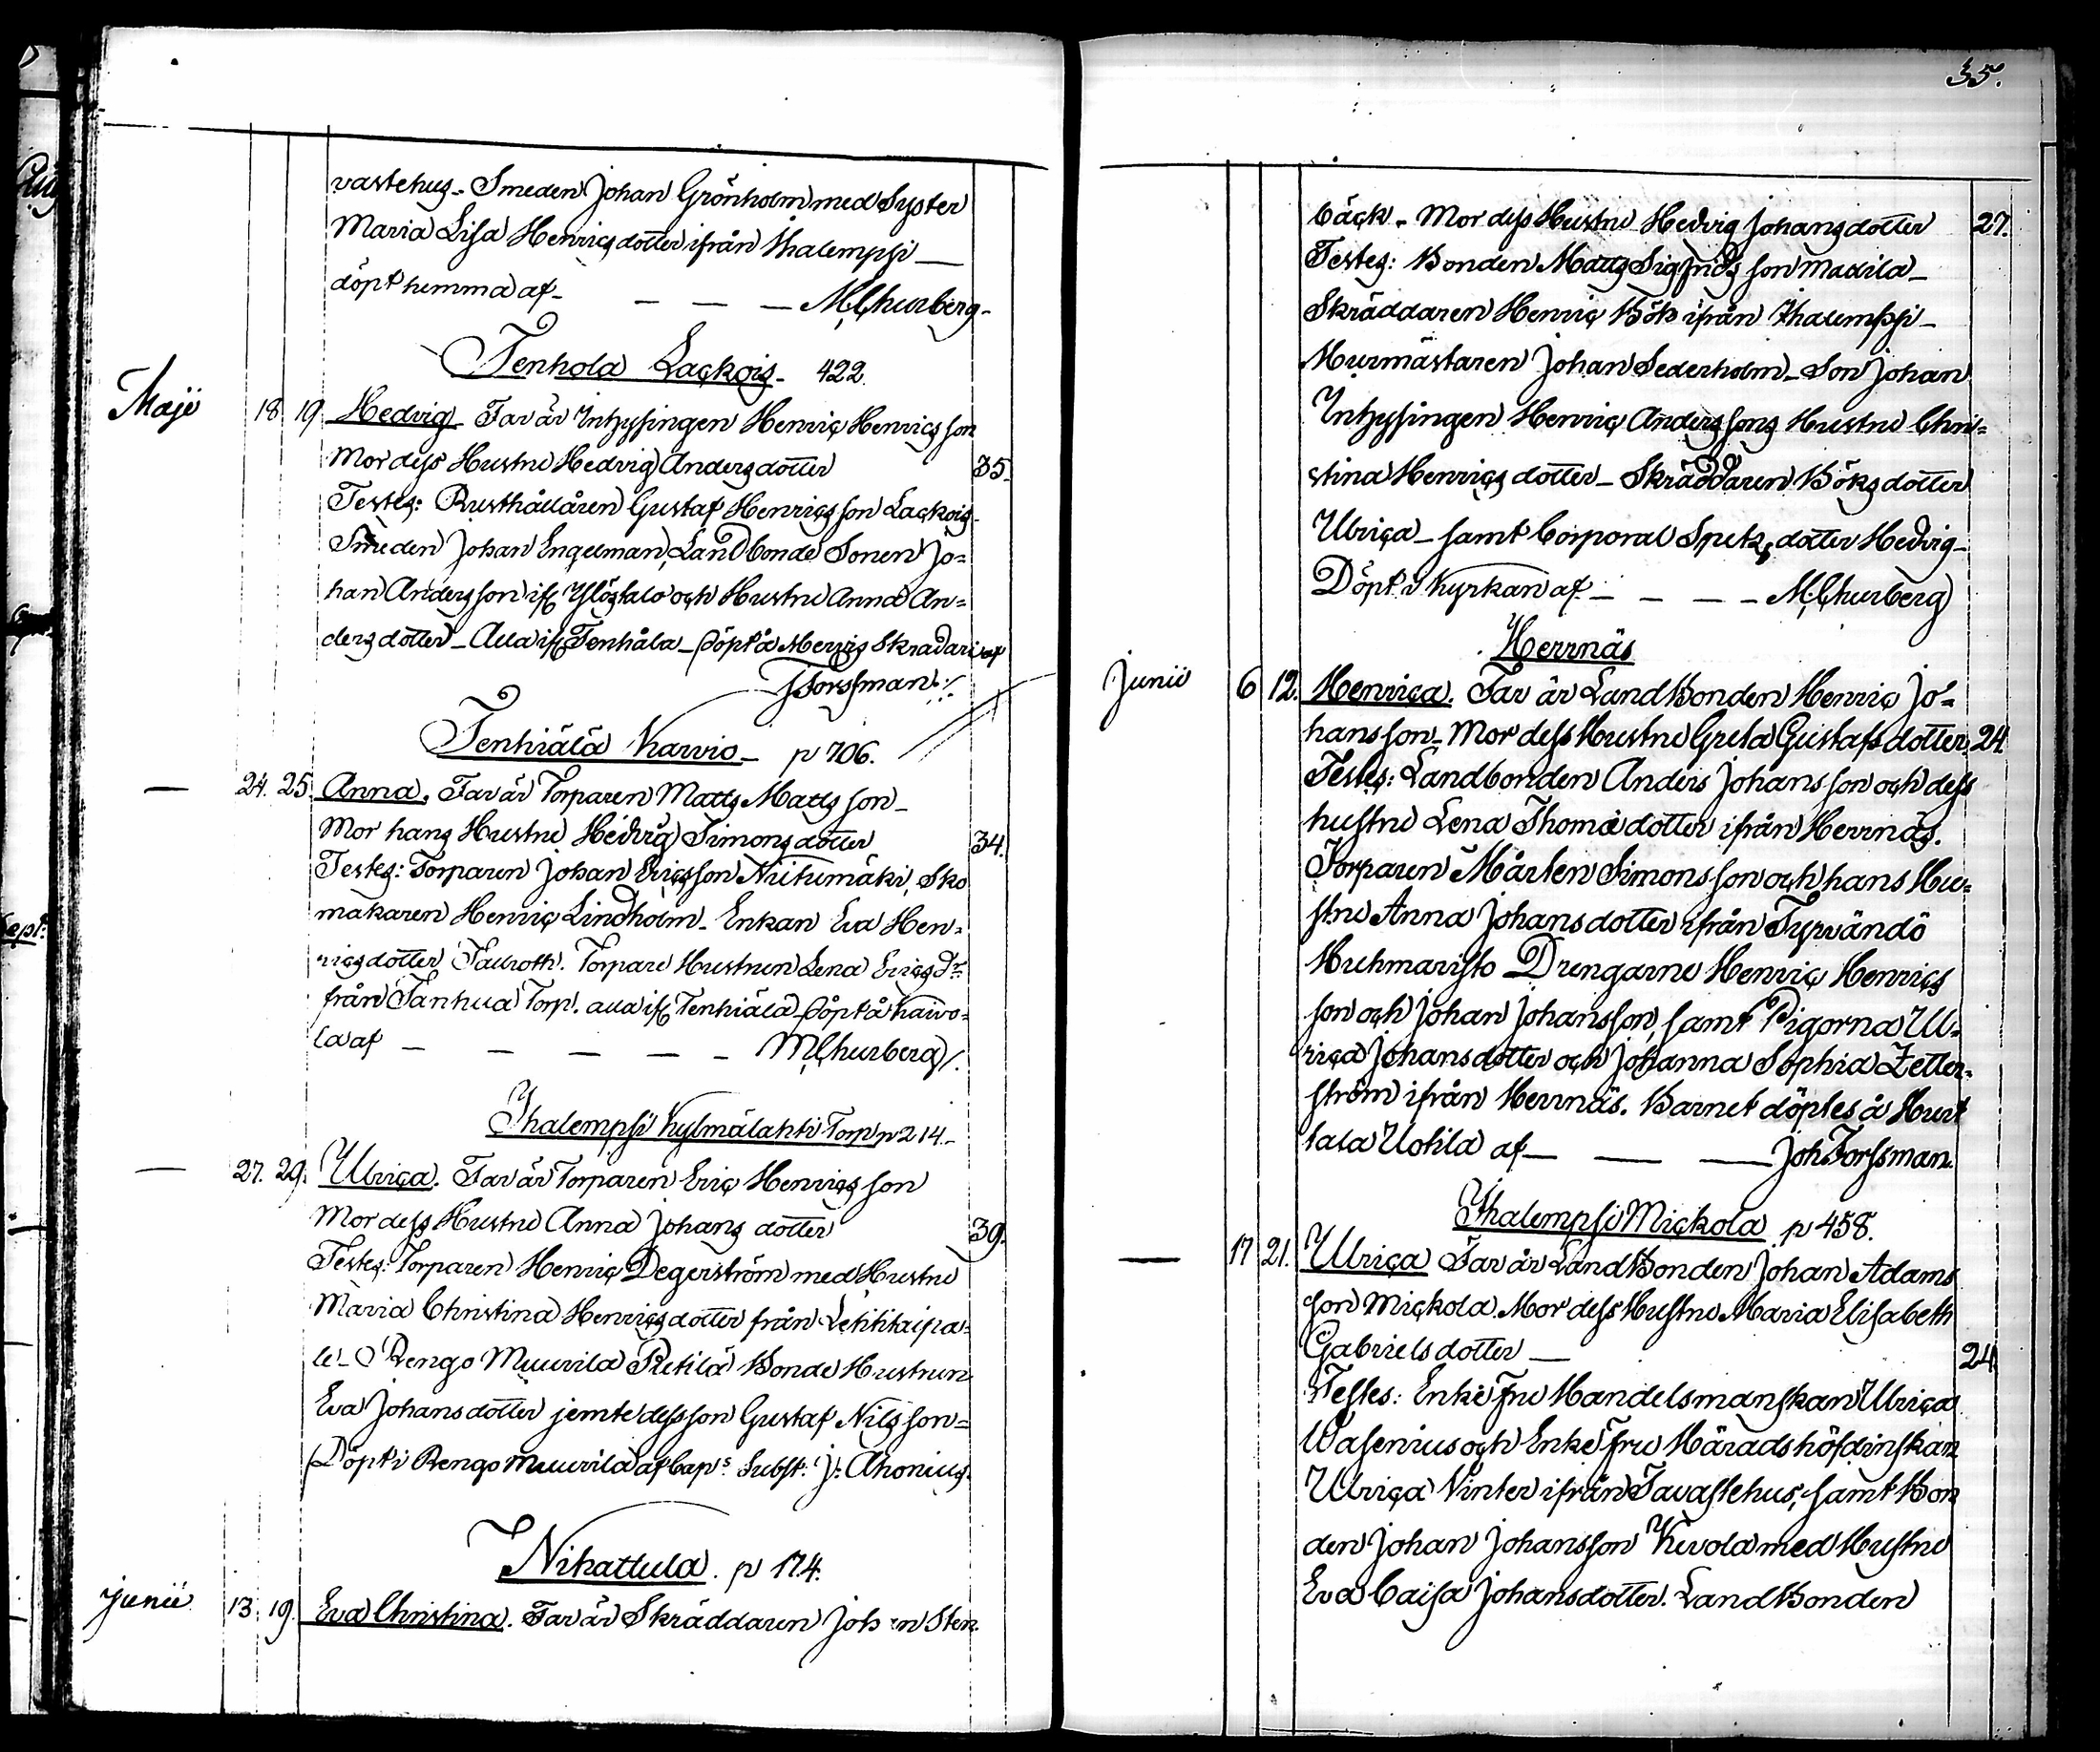 vastehus. Smeden Johan Grönholm med Syster
Maria Lisa Henricsdotter ifrån Ihalempsi —
döpt hemma af — — — M. Churberg.
Tenhola Lackois. 422.
Maji 18 19 Hedvig. Far är Inhysingen Henric Henricsson
Mor dess Hustru Hedvig Andersdotter 35.
Testes: Rusthållaren Gustaf Henricsson Lackois.
Smeden Johan Engelman, Landbonde Sonen Jo-
han Andersson if Ylöstalo och Hustru Anna An-
dersdotter. Alla if Tenhåla. Döpt å Mervis Skradari af
J Forssman ./.
Tenhiälä Karvio. p 706.
— 24. 25. Anna. Far är Torparen Matts Mattsson.
Mor hans Hustru Hedvig Simonsdotter 34.
Testes: Torparen Johan Ericsson Niitumäki, Sko
makaren Henric Lindholm. Enkan Eva Hen-
ricsdotter Tallroth. Torpare Hustrun Lena Ericsdr
från Tanhua Torp. alla if Tenhiälä. Döpt å Kaivo-
la af — — — — — M Churberg /.
Ihalempsi Kylmälahti Torp p 214.
— 27. 29. Ulrica. Far är Torparen Eric Henricsson
Mor dess Hustru Anna Johansdotter 39.
Testes: Torparen Henric Degerström med Hustru
Maria Christina Henricsdotter från
le. O Rengo Muurila Retilä Bonde Hustrun
Eva Johansdotter jemte dess son Gustaf Nilsson=
Döpt i Rengo Muurila af Caps. Subst. J. Ahonius.
Nihattula. p 174.
Junii 13. 19. Eva Christina. Far är Skräddaren Johan Sten
35.
bäck. Mor dess Hustru Hedvig Johansdotter 27.
Testes: Bonden Matts Sigfridsson Mackila.
Skräddaren Henric Böök ifrån Ihalempsi.
Murmästaren Johan Sederholm. Son Johan
Inhysingen Henric Anderssons Hustru Chri-
stina Henricsdotter. Skräddaren Bööks dotter
Ulrica. samt Corporal Spets dotter Hedvig.
Döpt i Kyrkan af — — — — M. Churberg
Herrnäs
Junii 6 12. Henrica. Far är LandBonden Henric Jo-
hansson. Mor dess Hustru Greta Gustafsdotter. 24.
Testes: Landbonden Anders Johansson och dess
hustru Lena Thomædotter ifrån Herrnäs.
Torparen Mårten Simonsson och hans Hu-
stru Anna Johansdotter ifrån Tyrvändö
Huhmaristo Drengarne Henric Henrics
son och Johan Johansson, samt Pigorna Ul-
rica Johansdotter och Johanna Sophia Zetter-
ström ifrån Herrnäs. Barnet döptes å Hurt
tala Uotila af — — — Joh Forssman.
Ihalempsi Mickola p 458.
— 17 21. Ulrica Far är LandBonden Johan Adams
son Mickola. Mor dess Hustru Maria Elisabeth
Gabrielsdotter — 24
Testes: Enke fru Handelsmanskan Ulrica
Wasenius och Enke fru Häradshöfdinskan
Ulrica Vinter ifrån Tavastehus, samt Bon
den Johan Johansson Kevola med Hustru
Eva Caisa Johansdotter. LandBonden